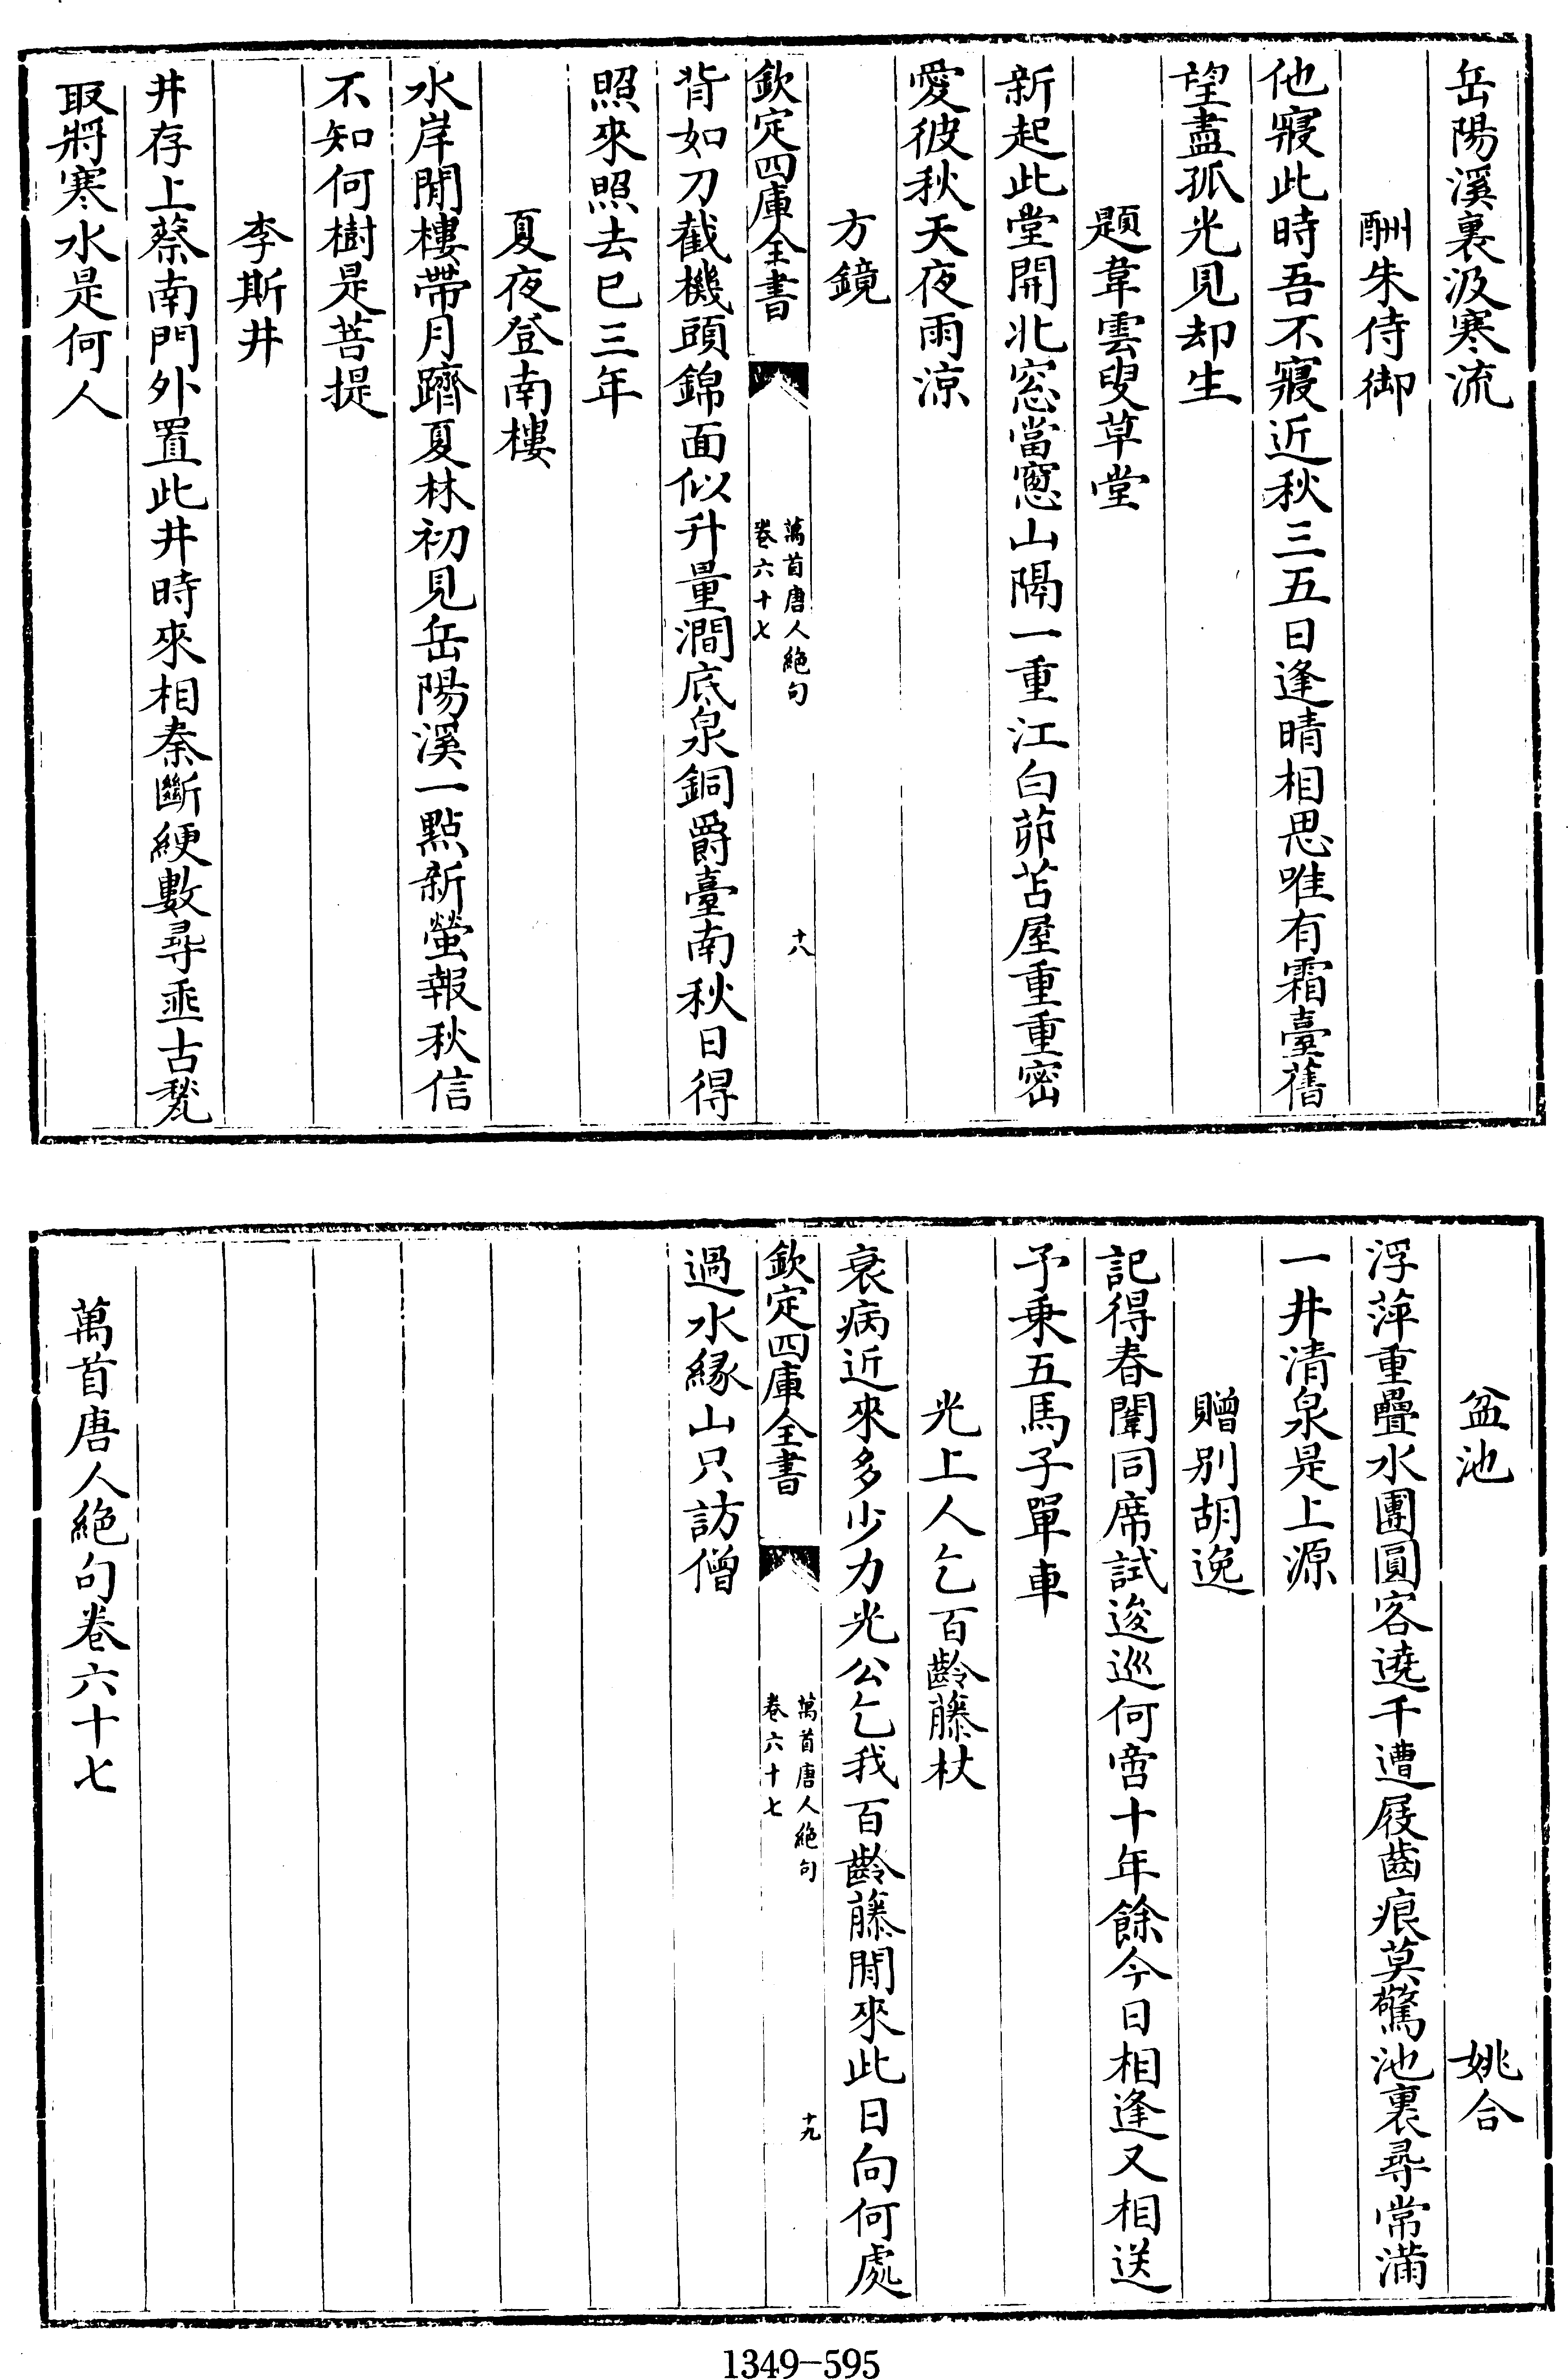 岳陽溪裏汲寒流
酬朱侍御
他寢此時吾不寢近秋三五日逢晴相思唯有霜臺舊
望盡孤光見却生
題韋雲叟草堂
新起此堂開北窓當窻山隔一重江白茆苫屋重重密
愛彼秋天夜雨涼
方鏡
欽定四庫全書
萬首唐人絶句
卷六十七
十八
背如刀截機頭錦面似升量澗底泉銅爵臺南秋日得
照來照去已三年
夏夜登南樓
水岸閒樓帶月躋夏林初見岳陽溪一點新螢報秋信
不知何樹是菩提
李斯井
井存上蔡南門外置此井時來相秦斷綆數尋垂古甃
取將寒水是何人
盆池
姚合
浮萍重疊水團圓客遶千遭屐齒痕莫驚池裏尋常滿
一井清泉是上源
贈别胡逸
記得春闈同席試逡巡何啻十年餘今日相逢又相送
予乗五馬子單車
光上人乞百齡藤杖
衰病近來多少力光公乞我百齡藤閒來此日向何處
欽定四庫全書
萬首唐人絶句
卷六十七
十九
過水緣山只訪僧
萬首唐人絶句卷六十七
1349-595